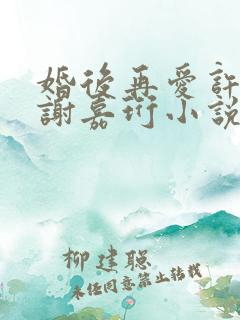 婚後再愛許
謝嘉珩小說
柳建聪
未经同意禁止转载